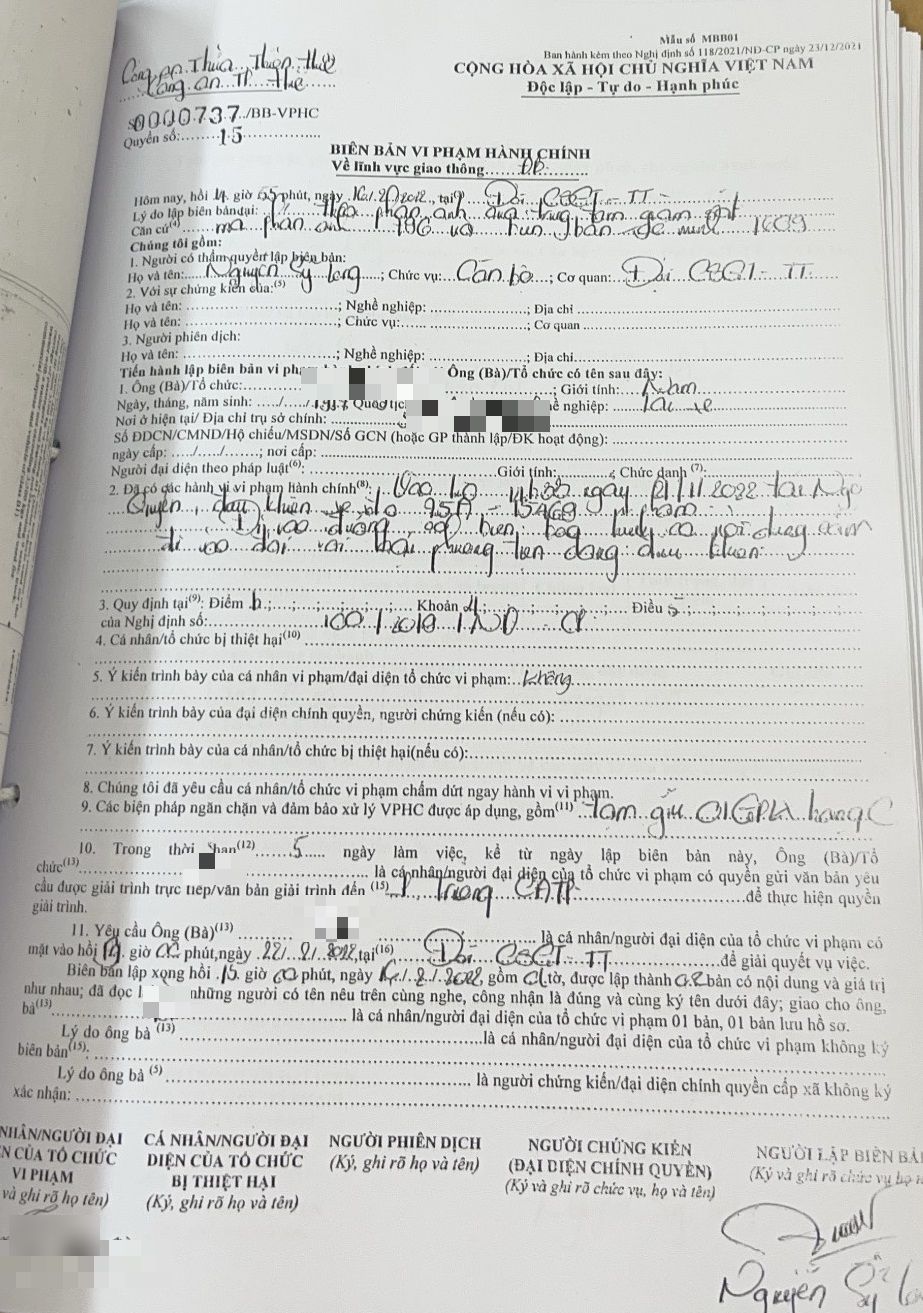 Mẫu số MBB01
Ban hành kèm theo Nghị định số 118/2021/NĐ-CP ngày 23/12/2021
Công an Thừa Thiên Huế
CỘNG HÒA XÃ HỘI CHỦ NGHĨA VIỆT NAM
Công an TP Huế
Độc lập - Tự do - Hạnh phúc
S0000737../BB-VPHC
Quyển số:.......15................
BIÊN BẢN VI PHẠM HÀNH CHÍNH
Về lĩnh vực giao thông......ĐB..........
Hôm nay, hồi 14 giờ 55 phút, ngày 2022., tại Đội CSGT - TT
Lý do lập biên bản tại: Theo phản ánh của trung tâm giám sát
Căn cứ(4) mã phản ánh
Chúng tôi gồm:
1. Người có thẩm quyền lập biên bản:
Họ và tên: Nguyễn Sỹ Long; Chức vụ: Cán bộ; Cơ quan: Đội CSGT - TT
2. Với sự chứng kiến của:(5)
Họ và tên: ............................; Nghề nghiệp: ..................; Địa chỉ ..................
Họ và tên: ............................; Chức vụ:..................; Cơ quan ..................
3. Người phiên dịch:
Họ và tên: ............................; Nghề nghiệp: ..................; Địa chỉ..................
Tiến hành lập biên bản vi phạ Ông (Bà)/Tổ chức có tên sau đây:
1. Ông (Bà)/Tổ chức:............; Giới tính: Nam
Ngày, tháng, năm sinh: ...../...../ Quốc tịc hề nghiệp: Lái xe
Nơi ở hiện tại/ Địa chỉ trụ sở chính:
Số ĐDCN/CMND/Hộ chiếu/MSDN/Số GCN (hoặc GP thành lập/ĐK hoạt động):
ngày cấp: ...../...../........; nơi cấp:
Người đại diện theo pháp luật(6): ............ Giới tính:............ Chức danh (7):
2. Đã có các hành vi vi phạm hành chính(8): Vào lúc ngày 21/1/2022 tại Ngô
Quyền, điều khiển xe ô tô 75A - 15469 vi phạm:
Đi vào đường có biển báo hiệu có nội dung cấm
đi vào đối với loại phương tiện đang điều khiển
3. Quy định tại(9): Điểm b.;.....;.....;.....;..... Khoản 4.;.....;.....;.....;..... Điều 5.;.....;.....;.....
của Nghị định số: 100/2019/NĐ - CP
4. Cá nhân/tổ chức bị thiệt hại(10)
5. Ý kiến trình bày của cá nhân vi phạm/đại diện tổ chức vi phạm: Không
6. Ý kiến trình bày của đại diện chính quyền, người chứng kiến (nếu có):
7. Ý kiến trình bày của cá nhân/tổ chức bị thiệt hại(nếu có):
8. Chúng tôi đã yêu cầu cá nhân/tổ chức vi phạm chấm dứt ngay hành vi vi phạm.
9. Các biện pháp ngăn chặn và đảm bảo xử lý VPHC được áp dụng, gồm(11) Tạm giữ 01 GPLX hạng C
10. Trong thời hạn(12)......5...... ngày làm việc, kể từ ngày lập biên bản này, Ông (Bà)/Tổ
chức(13) ............ là cá nhân/người đại diện của tổ chức vi phạm có quyền gửi văn bản yêu
cầu được giải trình trực tiếp/văn bản giải trình đến (15) Trưởng CATP để thực hiện quyền
giải trình.
11. Yêu cầu Ông (Bà)(13) ............ là cá nhân/người đại diện của tổ chức vi phạm có
mặt vào hồi giờ phút,ngày 22/2/2022,tại(16) Đội CSGT - TT để giải quyết vụ việc.
Biên bản lập xong hồi 15 giờ 00 phút, ngày 2/2022, gồm 01 tờ, được lập thành 02 bản có nội dung và giá trị
như nhau; đã đọc l những người có tên nêu trên cùng nghe, công nhận là đúng và cùng ký tên dưới đây; giao cho ông,
bà(13) ............ là cá nhân/người đại diện của tổ chức vi phạm 01 bản, 01 bản lưu hồ sơ.
Lý do ông bà (13) ............ là cá nhân/người đại diện của tổ chức vi phạm không ký
biên bản(15):
Lý do ông bà (5) ............ là người chứng kiến/đại diện chính quyền cấp xã không ký
xác nhận:
NHÂN/NGƯỜI ĐẠI
N CỦA TỔ CHỨC
VI PHẠM
và ghi rõ họ tên)
CÁ NHÂN/NGƯỜI ĐẠI
DIỆN CỦA TỔ CHỨC
BỊ THIỆT HẠI
(Ký, ghi rõ họ và tên)
NGƯỜI PHIÊN DỊCH
(Ký, ghi rõ họ và tên)
NGƯỜI CHỨNG KIẾN
(ĐẠI DIỆN CHÍNH QUYỀN)
(Ký và ghi rõ chức vụ, họ và tên)
NGƯỜI LẬP BIÊN BẢ
(Ký và ghi rõ chức vụ họ
Nguyễn Sỹ Lo